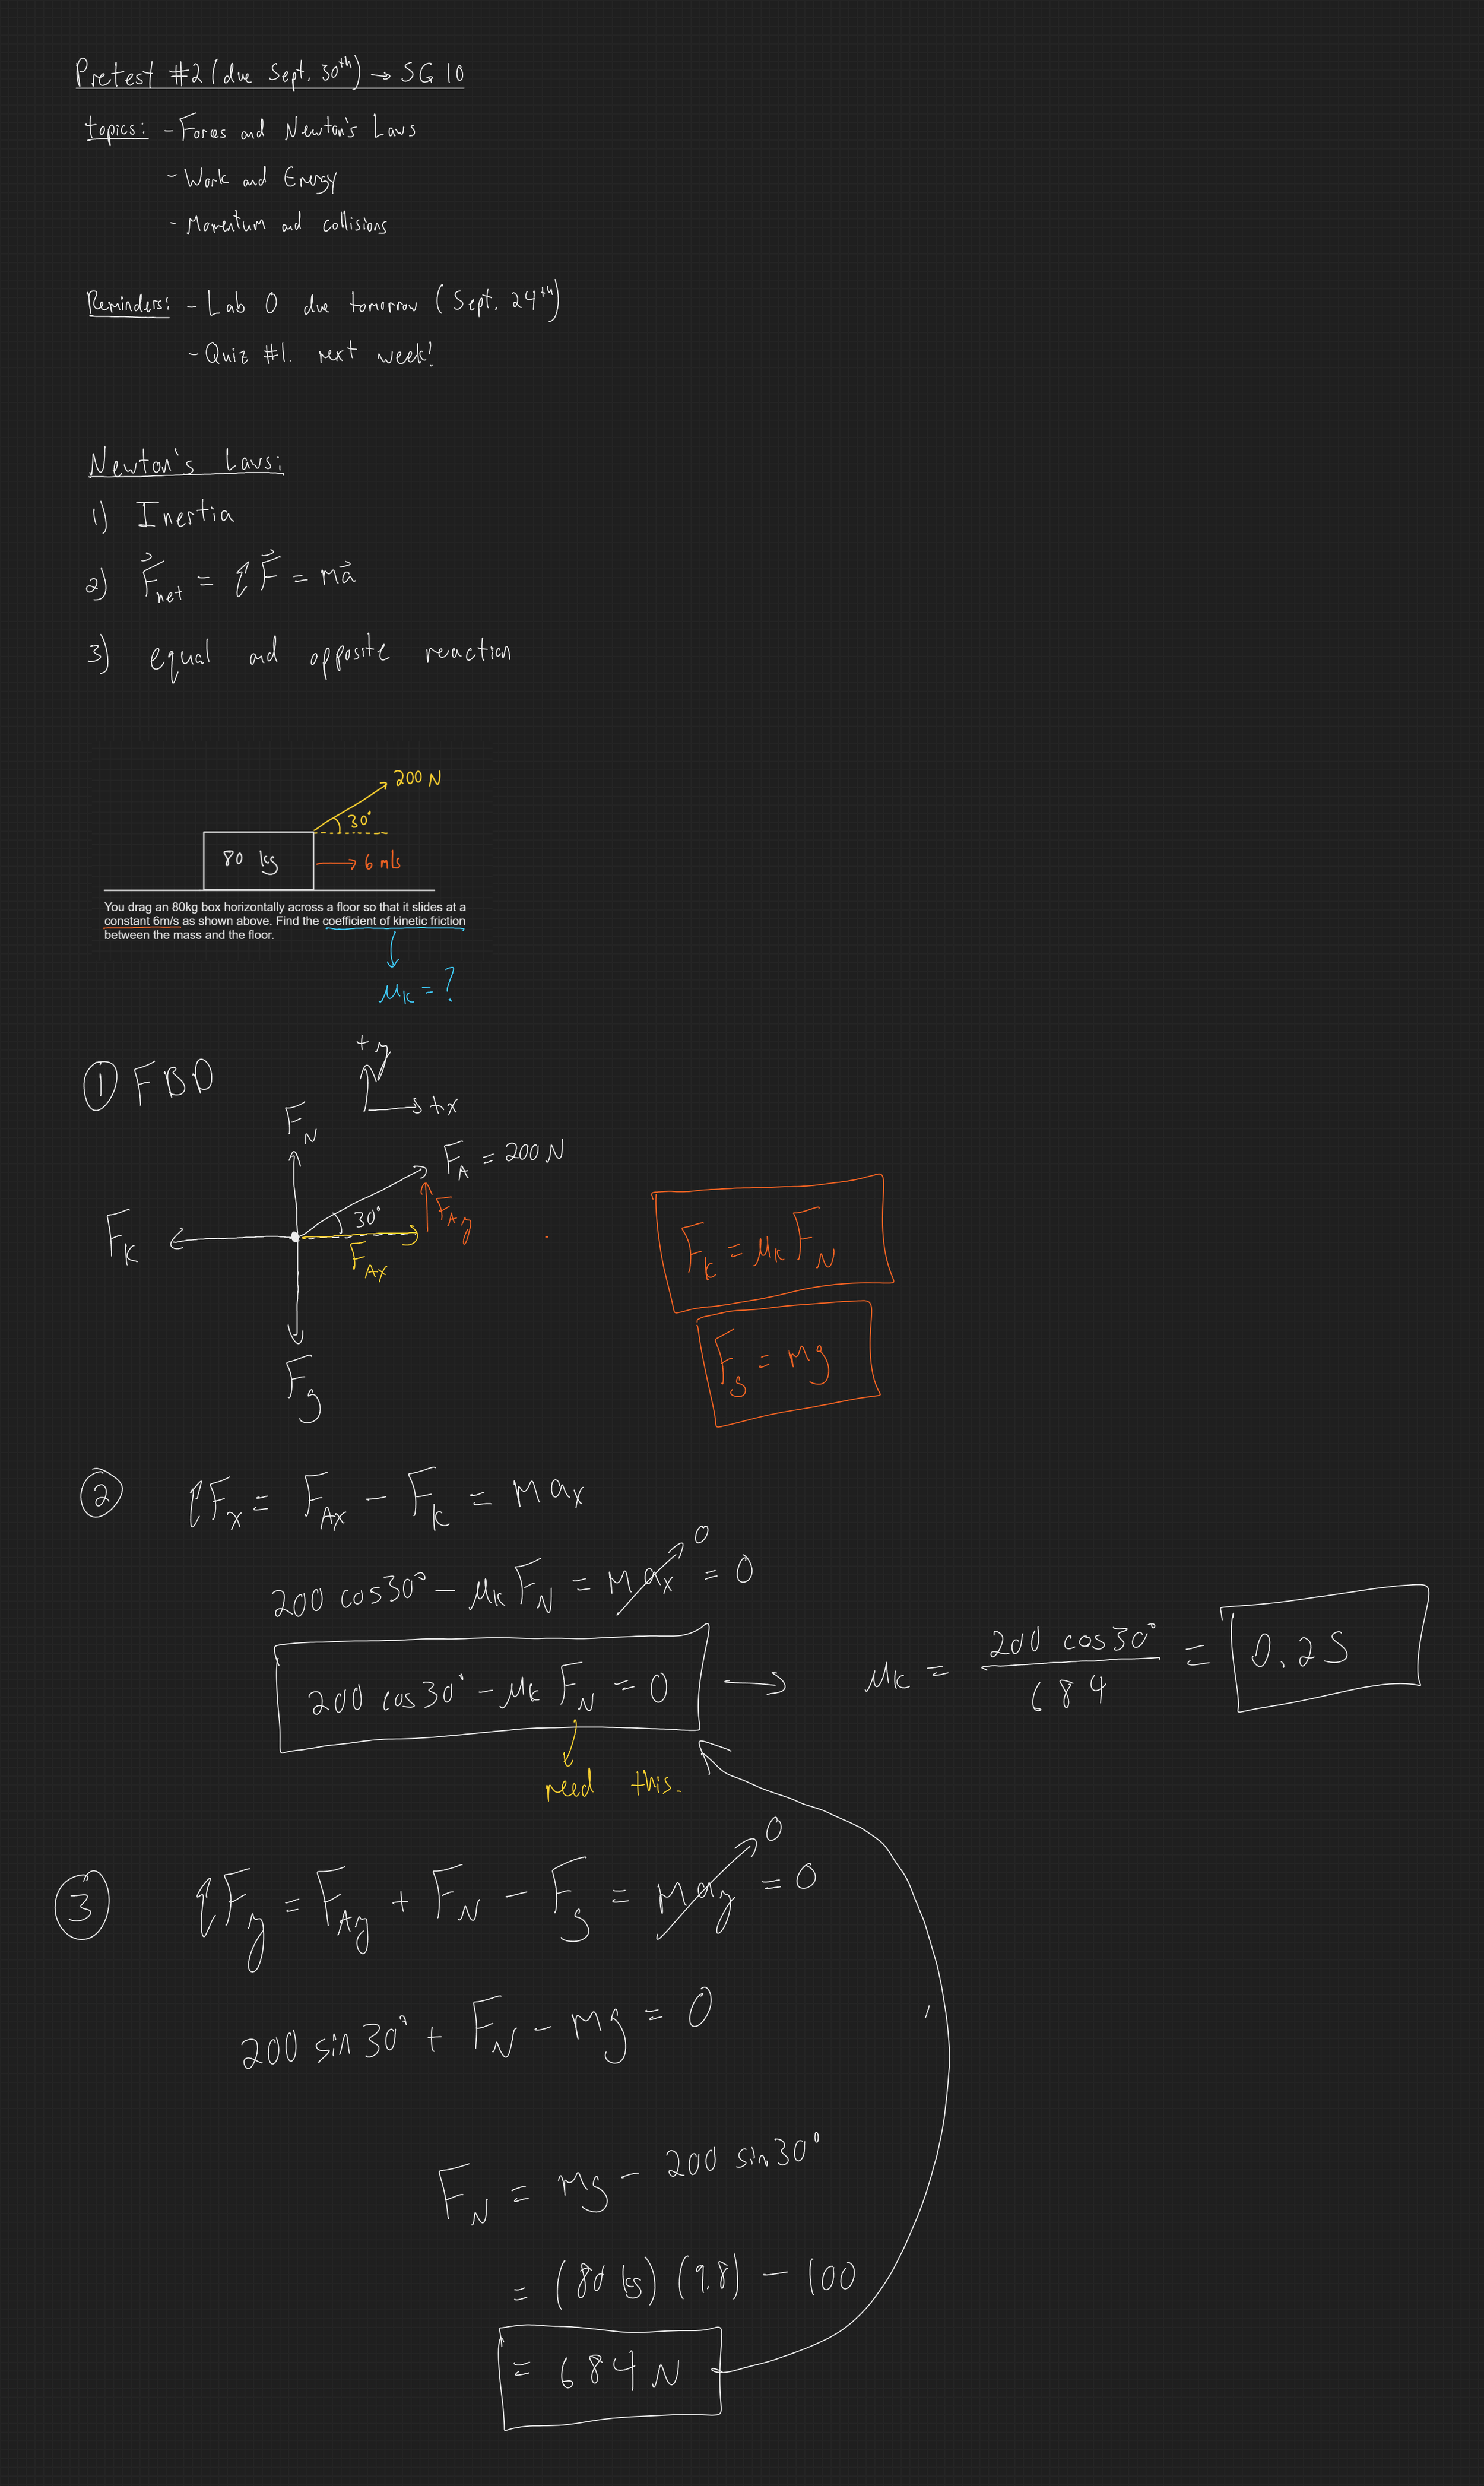 Pretest #2 (due Sept. 30th) → SG 10
topics: - Forces and Newton's Laws
- Work and Energy
- Momentum and collisions
Reminders: - Lab 0 due tomorrow (Sept. 24th)
- Quiz #1. next week!
Newton's Laws:
1) Inertia
2) F⃗net = Σ F⃗ = ma⃗
3) equal and opposite reaction
200 N
30°
80 kg
→ 6 m/s
You drag an 80kg box horizontally across a floor so that it slides at a
constant 6m/s as shown above. Find the coefficient of kinetic friction
between the mass and the floor.
μk = ?
① FBD
+y
+x
FN
FA = 200 N
FAy
30°
Fk
FAx
Fg
Fk = μk FN
Fg = mg
② ΣFx = FAx - Fk = max
200 cos30° - μk FN = max = 0
0
200 cos30° - μk FN = 0 → μk = 200 cos30° / 684 = 0.25
need this.
③ ΣFy = FAy + FN - Fg = may = 0
0
200 sin30° + FN - mg = 0
FN = mg - 200 sin30°
= (80 kg) (9.8) - 100
= 684 N